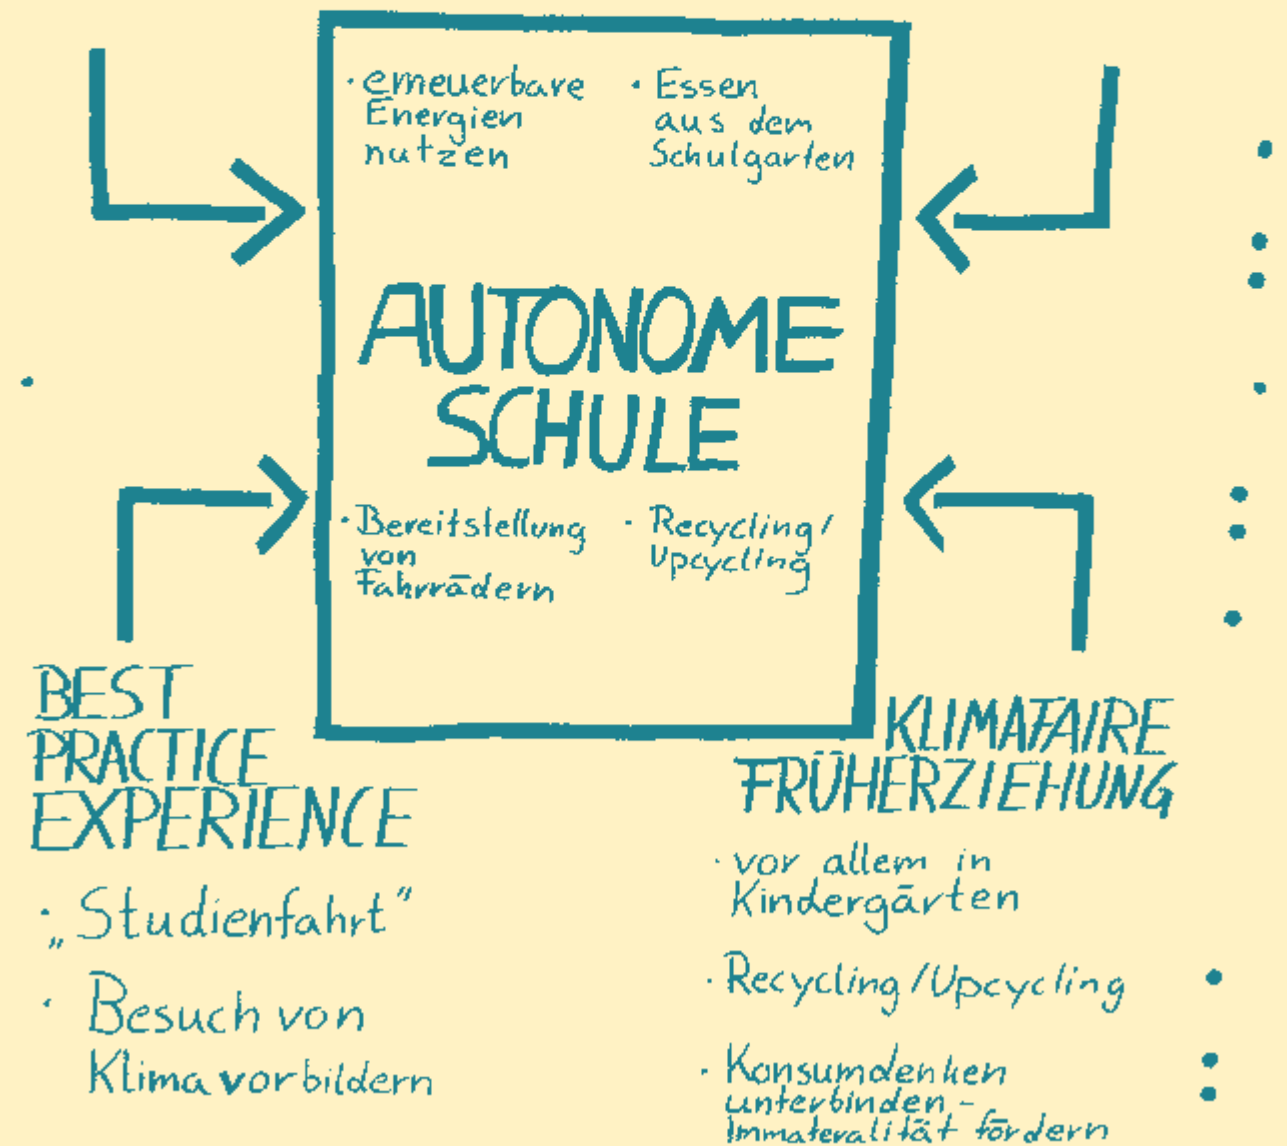 · erneuerbare
Energien
nutzen
· Essen
aus dem
Schulgarten
AUTONOME
SCHULE
· Bereitstellung
von
Fahrrädern
· Recycling/
Upcycling
BEST
PRACTICE
EXPERIENCE
· „Studienfahrt”
· Besuch von
Klimavorbildern
KLIMAFAIRE
FRÜHERZIEHUNG
· vor allem in
Kindergärten
· Recycling/Upcycling
· Konsumdenken
unterbinden -
Immateralität fördern